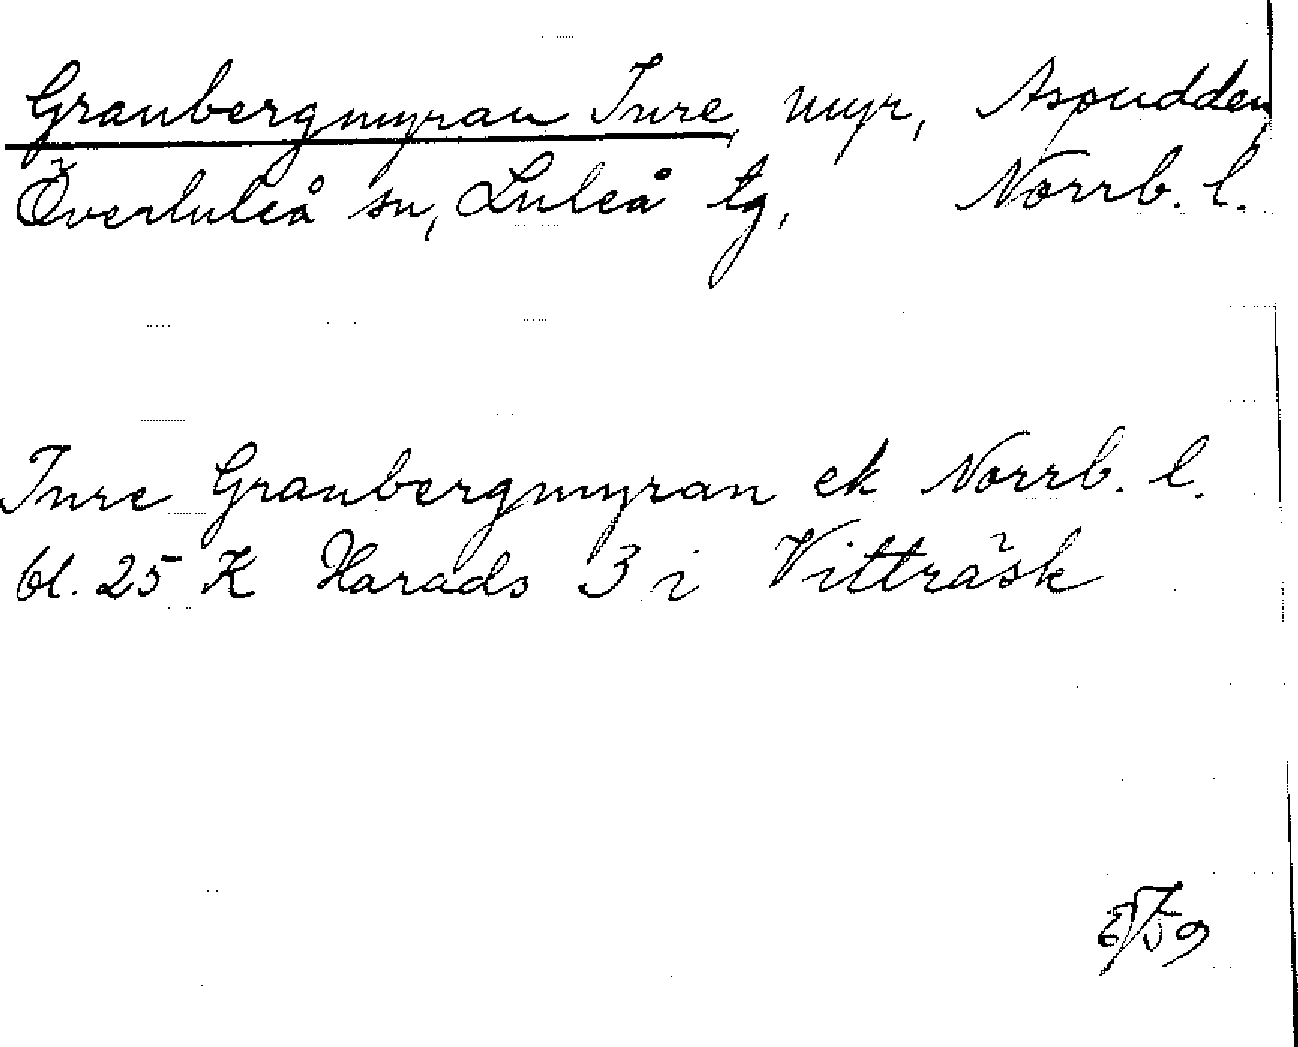 Granbergmyran Inre, myr, Aspudden,
Överluleå sn, Luleå tg, Norrb. l.
Inre Granbergmyran ek Norrb. l.
bl. 25 K Harads 3 i Vitträsk